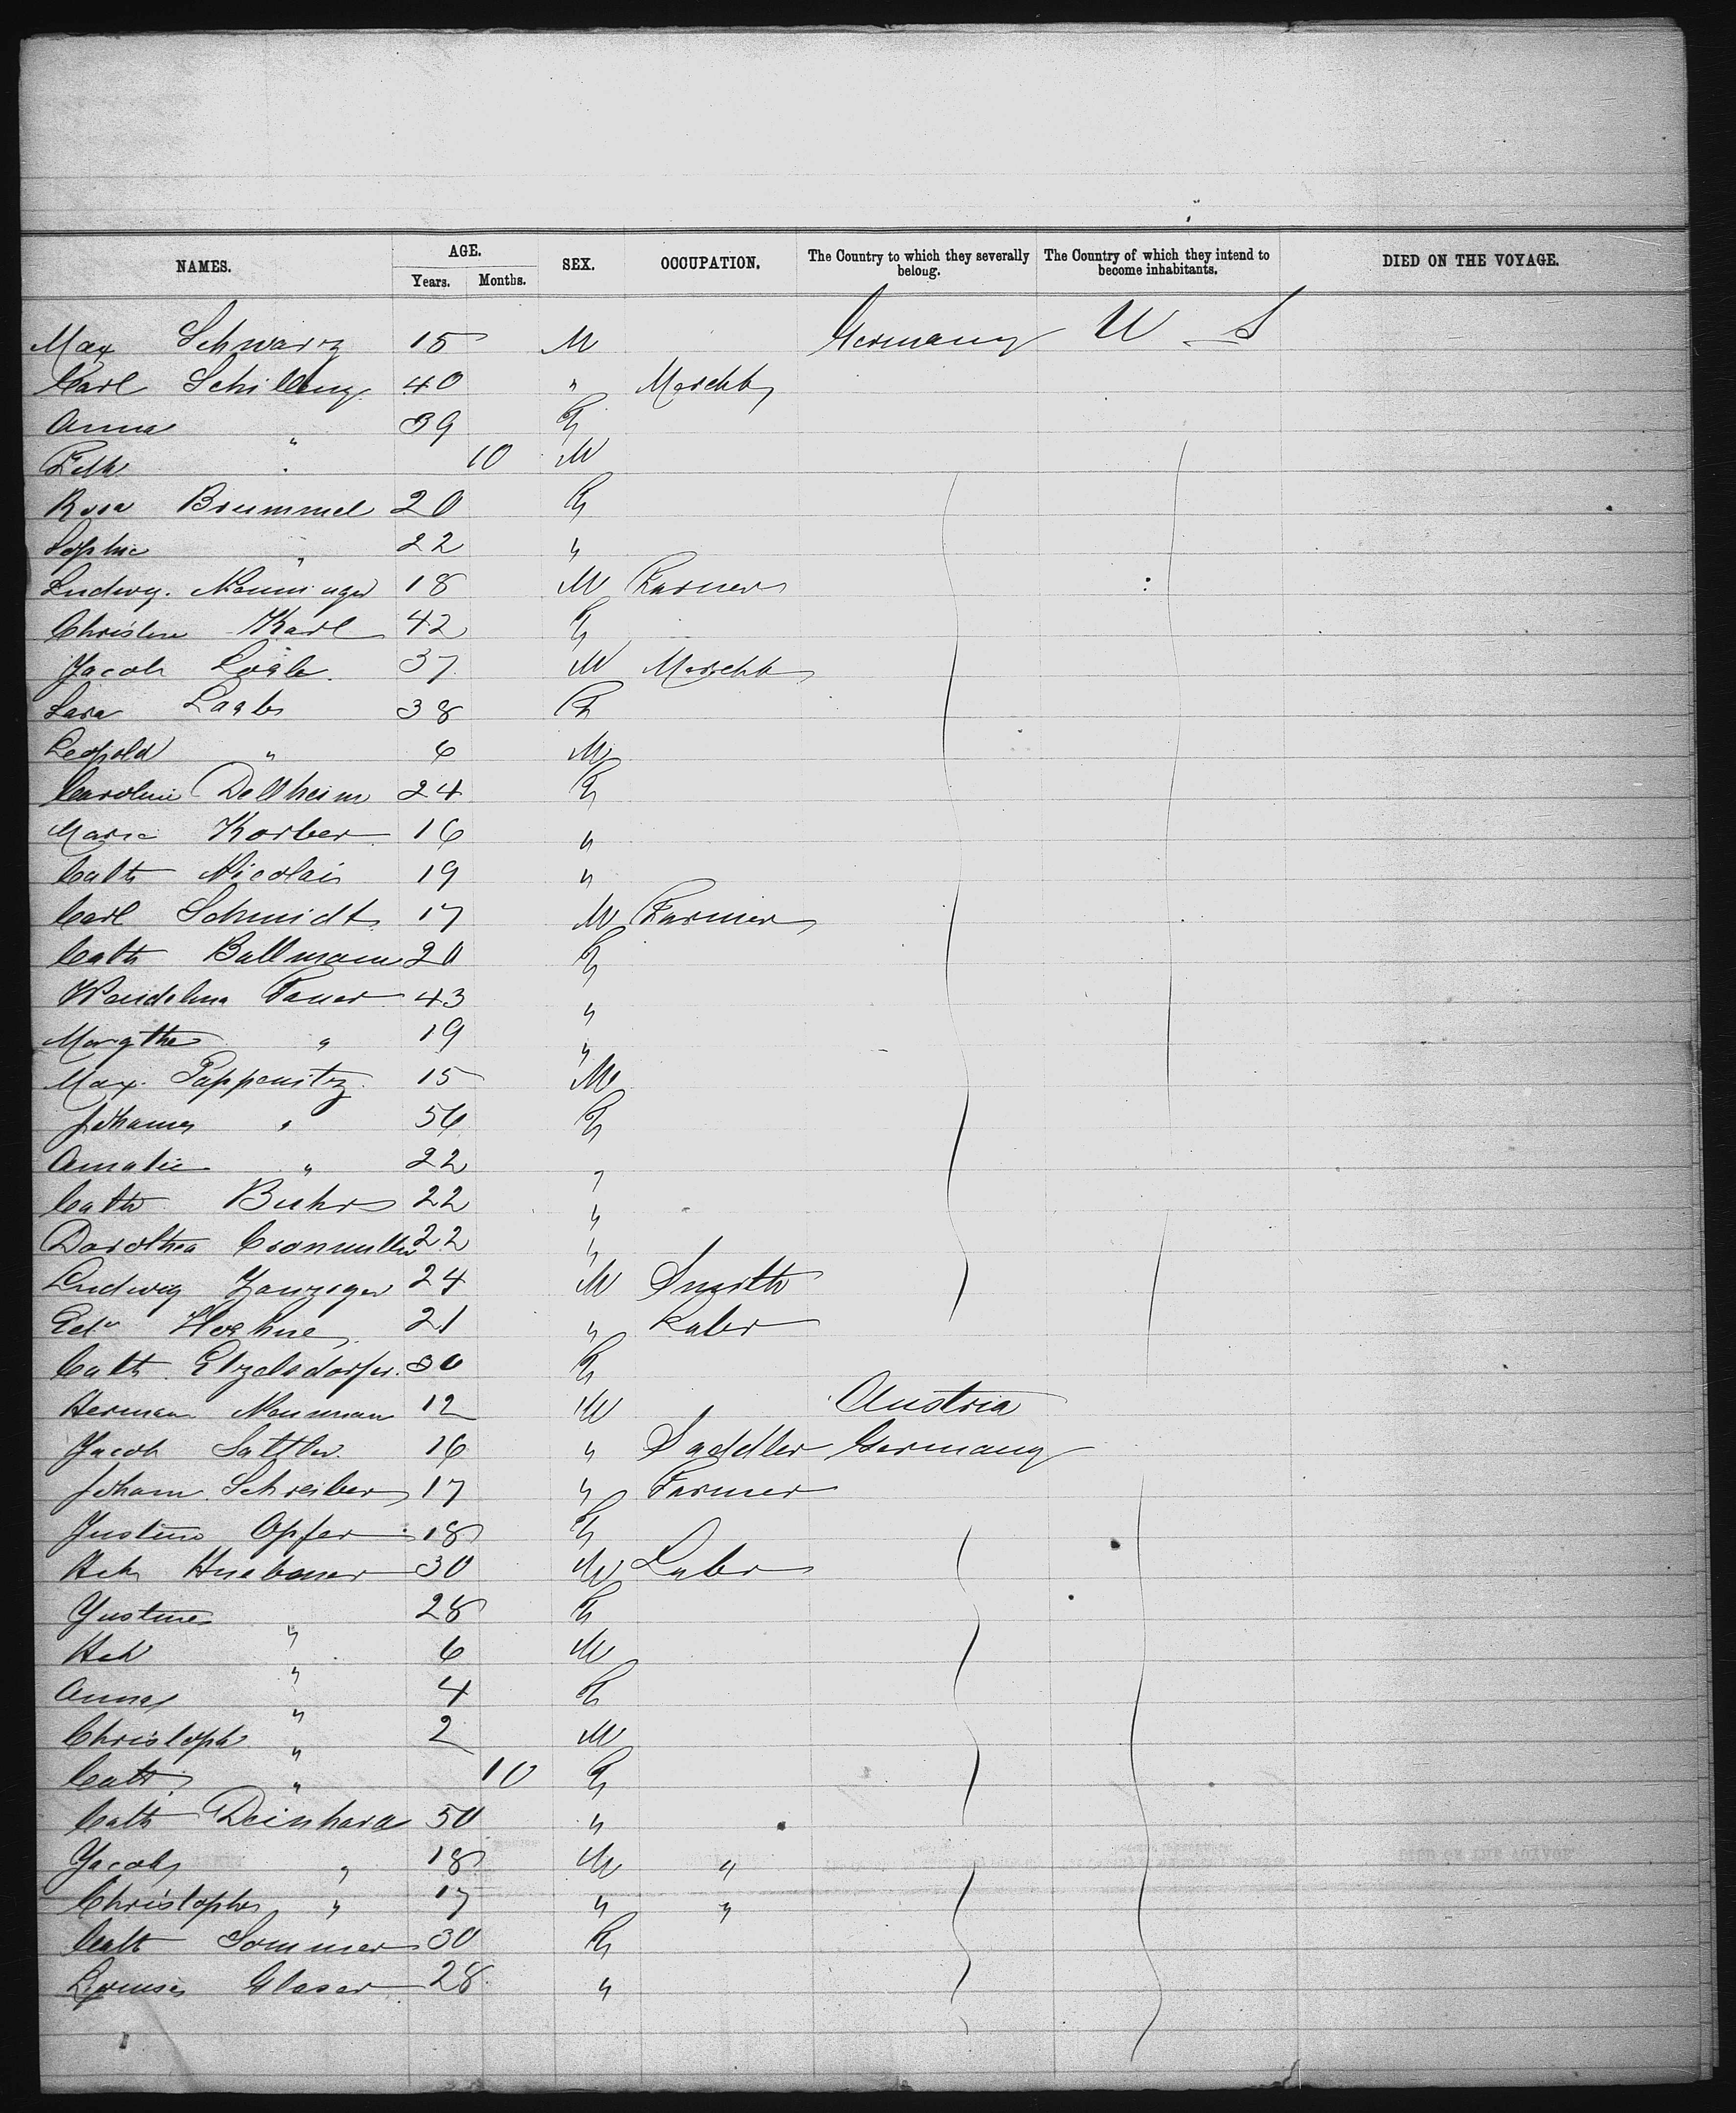 NAMES. AGE. SEX. OCCUPATION. The Country to which they severally belong. The Country of which they intend to become inhabitants. DIED ON THE VOYAGE.
Years. Months.
Max Schwarz 15 M Germany U S
Carl Schilling 40 " Marchb
Anna " 39 F
" 10 M
Rosa Brummel 20 F
Sophie " 22 "
Ludwg. Nenninger 18 M Farmer
Christine Karl 42 F
Jacob 37 M Marchb
Sara 38 F
Leopold " 6 M
Caroline Dellheim 24 F
Maria Korber 16 "
Cath Nicolai 19 "
Carl Schmidt 17 M Farmer
Cath Ballmann 20 F
Wendelina Faner 43 "
Margthe " 19 "
Max. Pappenitz 15 M
Johanna " 56 F
Amalie " 22 "
Cath Buhr 22 "
Dorothea Cronmuller 22 "
Ludwig Zanziger 24 M Smith
Edw Hoehne 21 " Labr
Cath. Etzelsdorfer. 30 F
Herman Neumann 12 M Austria
Jacob Sattler. 16 " Saddler Germany
Johann Schreiber 17 " Farmer
Justine Opfer 18 F
Hch Huebener 30 M Labr
Justine " 28 F
Hch " 6 M
Anna " 4 F
Christoph " 2 M
Cath " 10 F
Cath Deinhard 50 "
Jacob " 18 M "
Christopher " 17 " "
Cath Sommer 30 F
Louise Glaser 28 "